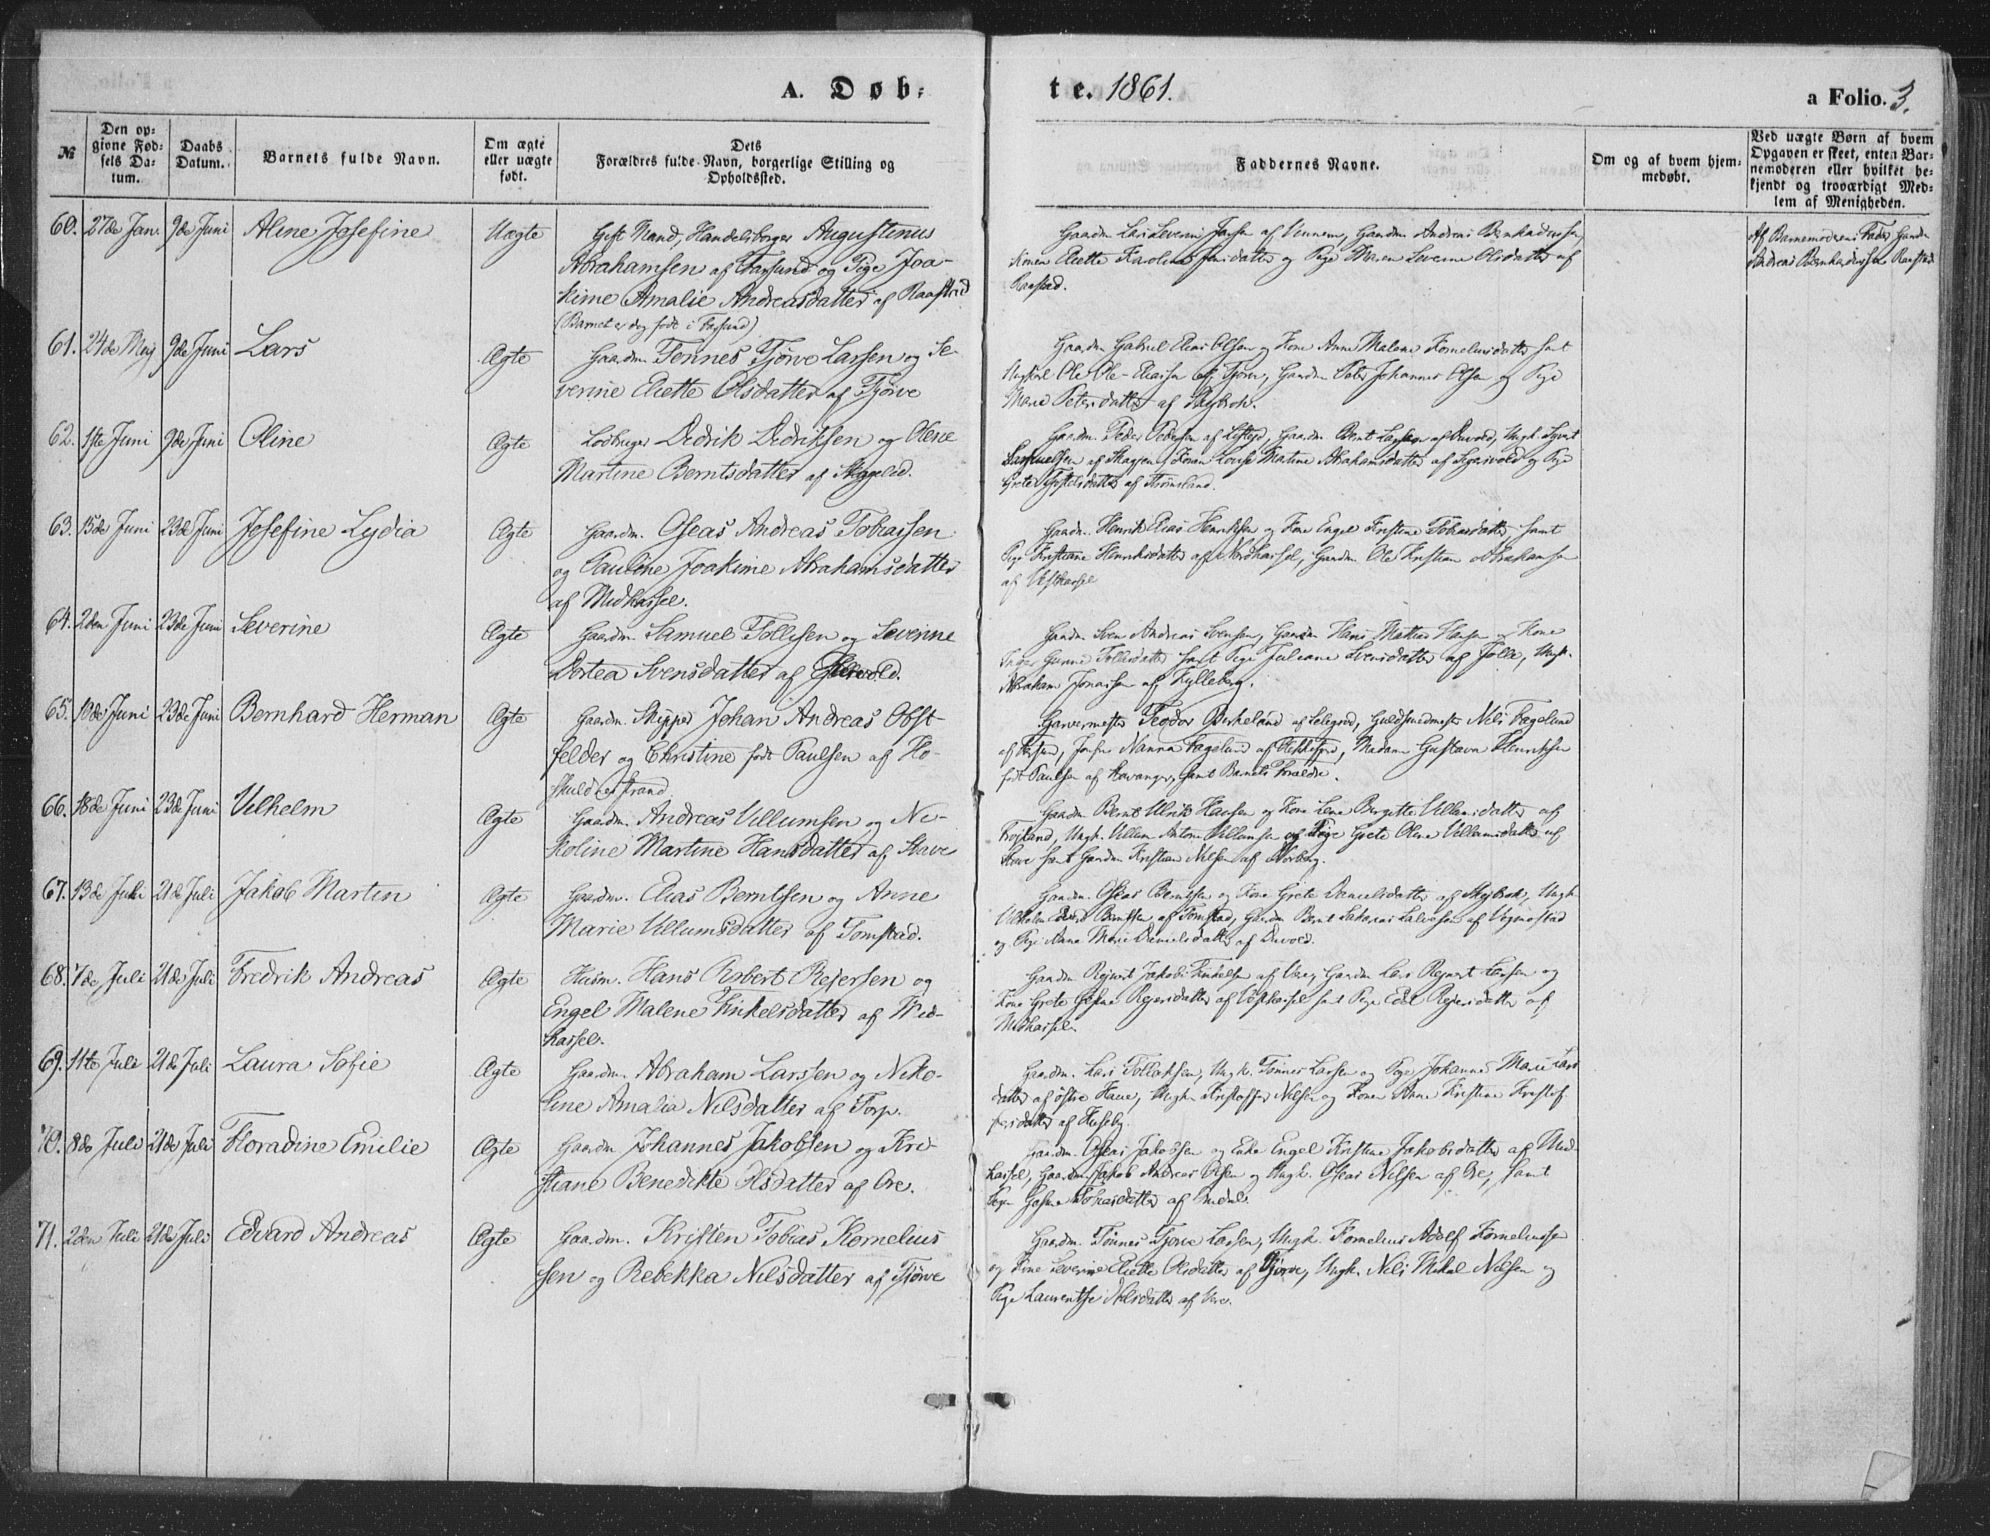 A. Døb-
te. 1861.
a Folio. 3.
№
Den op-
givne Fød-
sels Da-
tum.
Daabs
Datum.
Barnets fulde Navn.
Om ægte
eller uægte
født.
Dets
Forældres fulde Navn, borgerlige Stilling og
Opholdssted.
Faddernes Navne.
Om og af hvem hjem-
medøbt.
Ved uægte Børn af hvem
Opgaven er skeet, enten Bar-
nemoderen eller hvilket be-
kjendt og troværdigt Med-
lem af Menigheden.
60. 27de Jan. 9de Juni Aline Josefine Uægte Gift Mand, Handelsborger Augustinus
Abrahamsen af Farsund og Pige Joa-
kime Amalie Andreasdatter af Raastad
(Barnet er dog født i Farsund)
Gaardm Lars Severin Jansen af Vennem, Gaardm Andreas Bernhardussen,
Elette Karoline Jensdatter og Pige Maren Severine Olsdatter af
Raastad.
Af Barnemoderens Fader Gaardm
Andreas Bernhardussen Raastad
61. 24de Maj 9de Juni Lars Ægte Gaardm. Tønnes Tjørve Larsen og Se-
verine Elette Olsdatter af Tjørve
Gaardm Gabriel Elias Olsen og Kone Anne Malene Kornelisdatter samt
Ungkarl Ole Ole-Eliassen af Tjørve, Gaardm Peter Johannes Olsen og Pige
Marie Petersdatter af
62. 1ste Juni 9de Juni Oline Ægte Losbruger Didrik Didriksen og Olene
Martine Berntsdatter af
Gaardm. Peder Pedersen af Gaardm Bernt Larsen af Duvold, Ungk.
Samuelsen af Skagen, Konen Lovise Martine Abrahamsdatter af og Pige
Grete af Strømsland.
63. 15de Juni 23de Juni Josefine Lydia Ægte Gaardm. Oseas Andreas Tobiassen
og Pauline Joakime Abrahamsdatter
af Midhassel.
Gaardm. Henrik Elias Henriksen og Kone Engel Kristine Tobiasdatter samt
Pige Kristiane Henriksdatter af Nordhassel, Gaardm Ole Kristian Abrahamsen
af Vesthassel
64. 2den Juni 23de Juni Severine Ægte Gaardm Samuel Tollisen og Severine
Dortea Svensdatter af
Gaardm Sven Andreas Svensen, Gaardm Hans Mattias Hansen og Kone
Inger Gunne Tollisdatter samt Pige Juliane Svensdatter af Jølle, Ungk.
Abraham Jonassen af Kylleberg.
65. 10de Juni 23de Juni Bernhard Herman Ægte Gaardm. Skipper Johan Andreas Obst-
felder og Christine født Paulsen af Ho-
skuldsstrand
Garvermester Teodor Berkeland af Lelegrod, Guldsmedmester Nils Fagelund
af Farsund, Jomfru Nanna Fagelund af Flekkefjord, Madame Gustava Henriksen
født Paulsen af Stavanger, samt Barnets Forældre.
66. 18de Juni 23de Juni Vilhelm Ægte Gaardm. Andreas Villumsen og Ni-
koline Martine Hansdatter af Stave
Gaardm Bernt Ulrik Hansen og Kone Lene Bergitte Villumsdatter af
Frøiland, Ungk. Villum Anton Villumsen og Pige Grete Olene Villumsdatter af
Stave samt Gaardm Kristian Nilsen af Norberg.
67. 13de Juli 21de Juli Jakob Martin Ægte Gaardm. Elias Berntsen og Anne
Marie Villumsdatter af Tomstad.
Gaardm. Oseas Berntsen og Kone Grete Danielsdatter af Ungk.
Vilhelm Edvard Berntsen af Tomstad, Gaardm Bernt Sakarias Salvesen af Vigmostad
og Pige Anne Marie Danielsdatter af Duvold.
68. 7de Juli 21de Juli Fredrik Andreas Ægte Husm. Hans Robert Rejersen og
Engel Malene Tinkelsdatter af Mid-
hassel.
Gaardm Rejnert Jakob Tinkelsen af Vere, Gaardm Lars Rejnert Larsen og
Kone Grete Gosine Rejersdatter af Vesthassel samt Pige Edel Rejersdatter af
Midhassel.
69. 11te Juli 21de Juli Laura Sofie Ægte Gaardm. Abraham Larssen og Niko-
line Amalia Nilsdatter af Torp.
Gaardm. Lars Tollaksen, Ungk. Tønnes Larsen og Pige Johanne Marie Lars
datter af østre Haue, Ungk. Kristoffer Nilsen og Konen Anne Kristine Kristof-
fersdatter af Huseby.
70. 8de Juli 21de Juli Floradine Emilie Ægte Gaardm Johannes Jakobsen og Kri-
stiane Benedikte Olsdatter af Ore.
Gaardm. Oseas Jakobsen og Enke Engel Kristine Jakobsdatter af Mid-
hassel, Gaardm Jakob Andreas Olsen og Ungk. Oseas Nilsen af Ore, samt
Pige Gosine Tobiasdatter af
71. 2den Juli 21de Juli Edvard Andreas Ægte Gaardm. Kristen Tobias Kornelius
sen og Rebekka Nilsdatter af Tjørve
Gaardm. Tønnes Tjørve Larsen, Ungk. Kornelius Adolf Korneliussen
og Kone Severine Elette Olsdatter af Tjørve, Ungk. Nils Mikal Nilsen og
Pige Laurentse Nilsdatter af Vere.